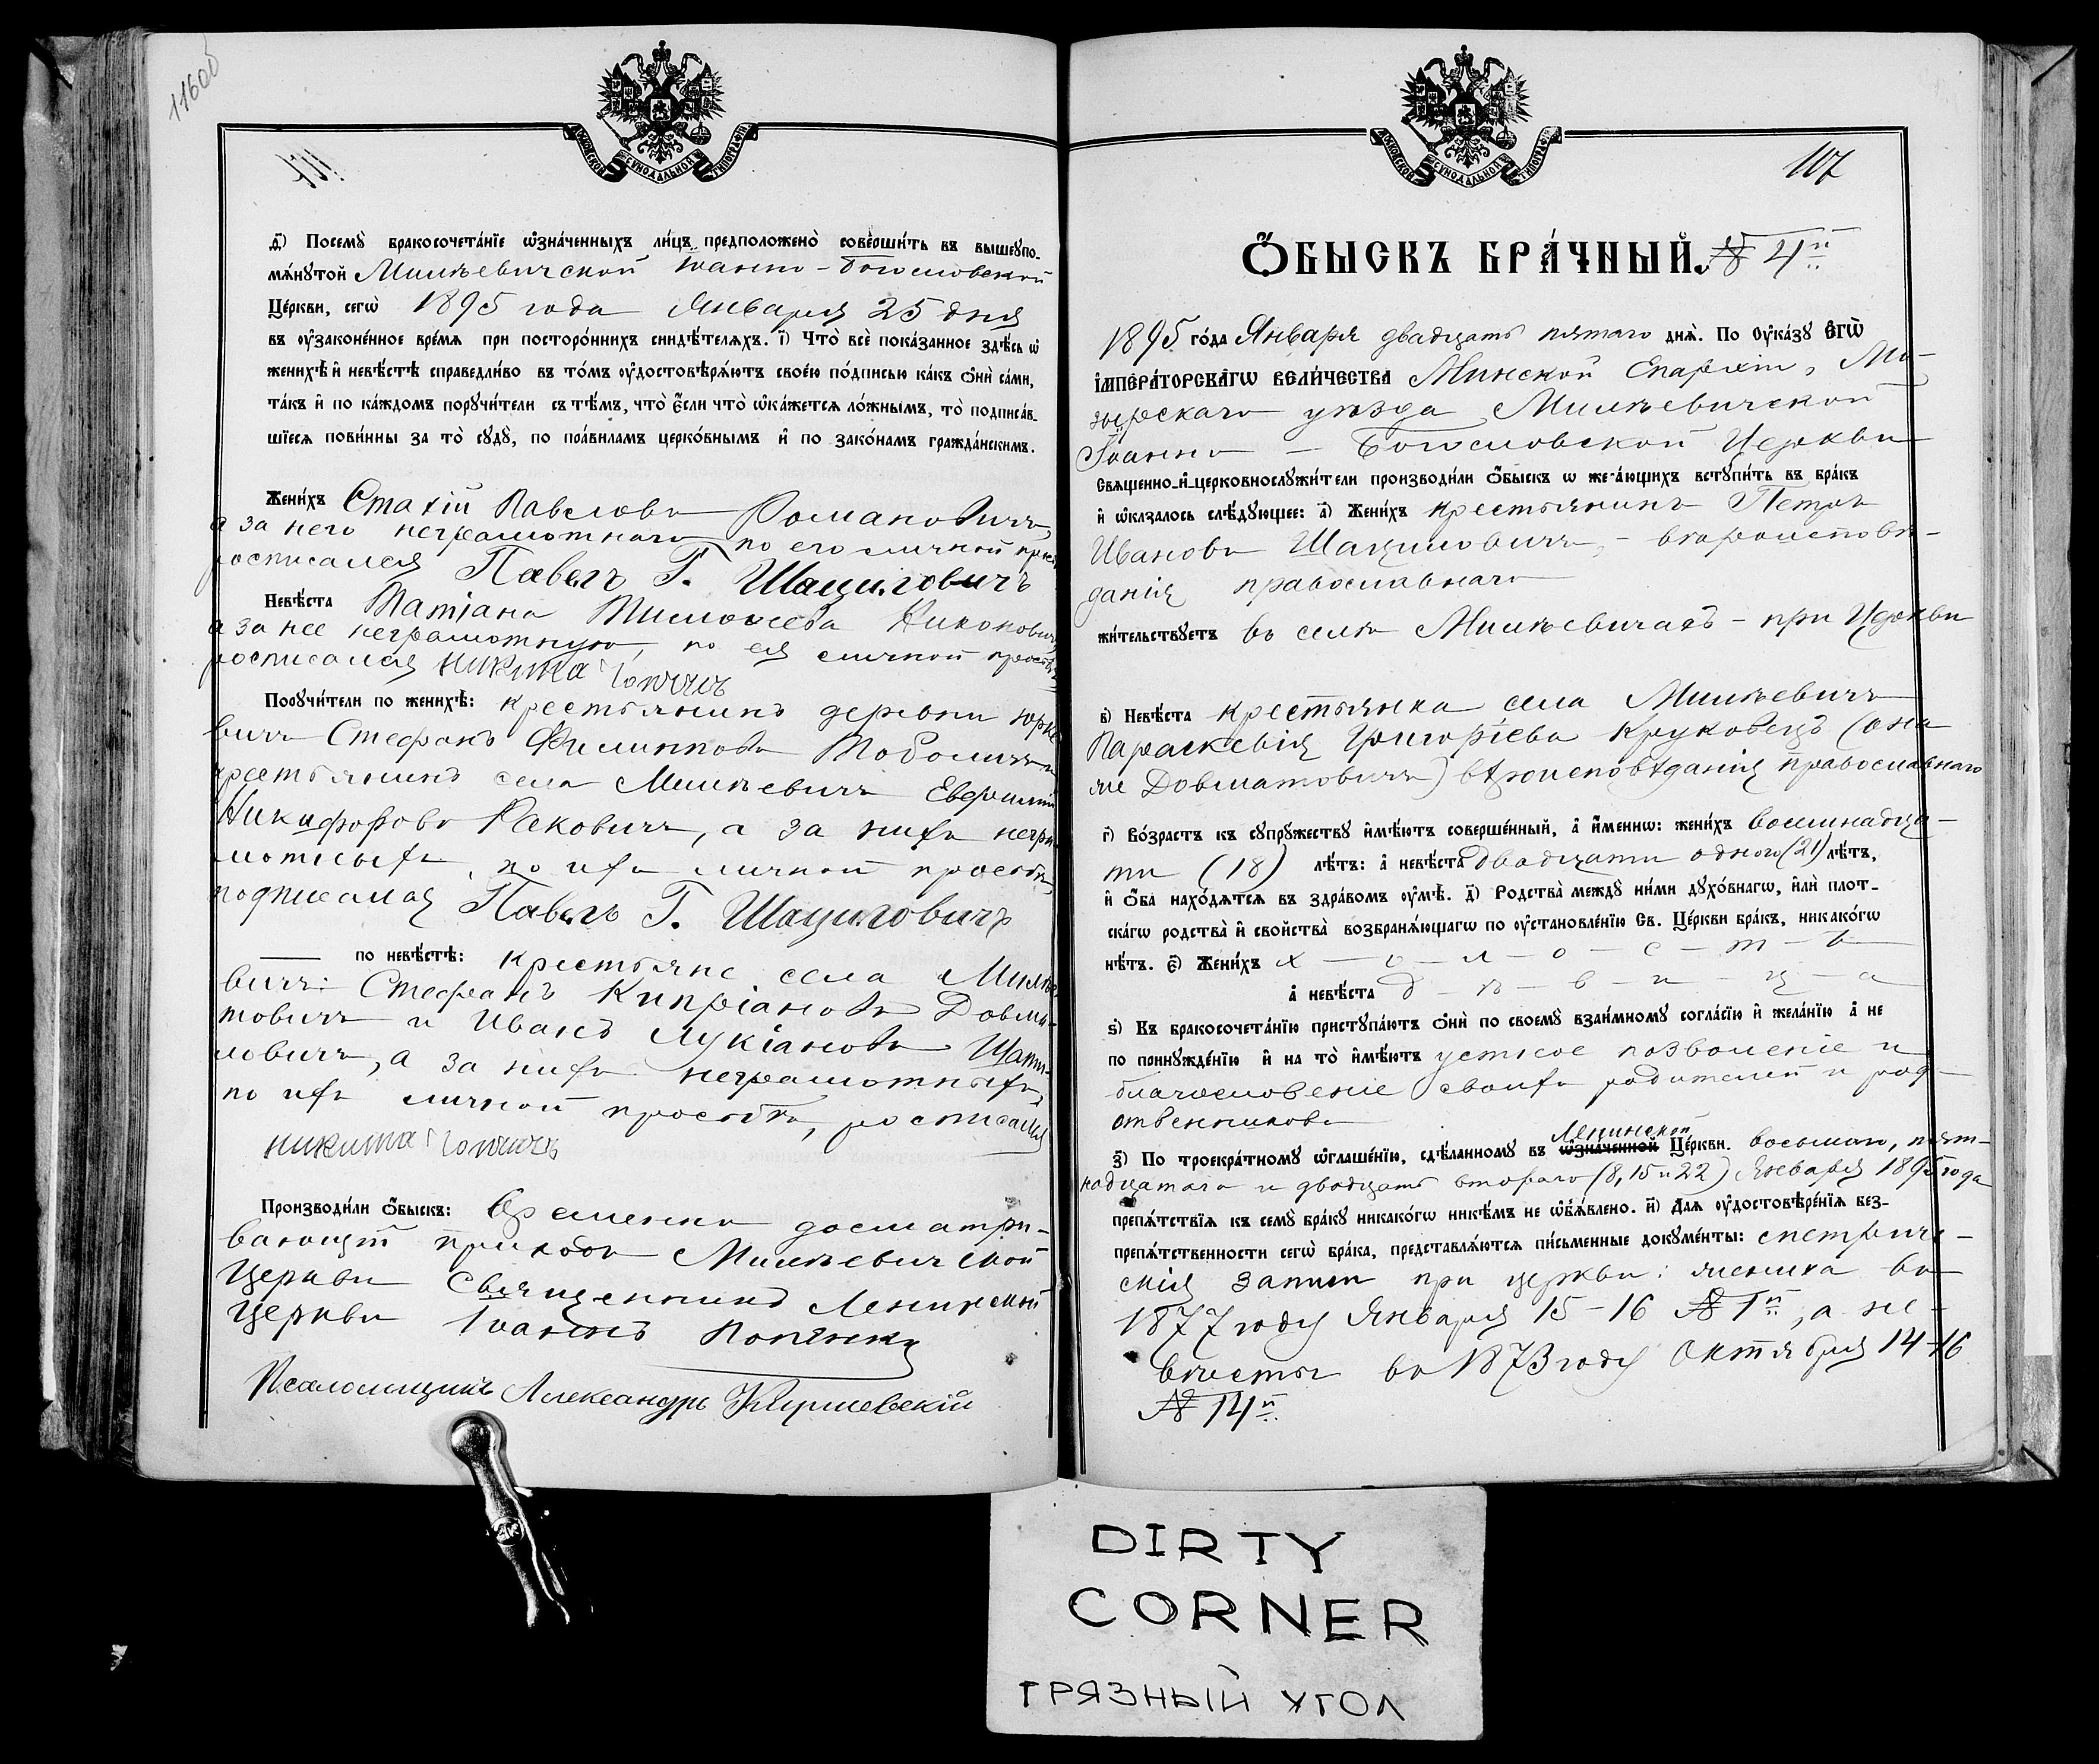 1160об
МОСКОВСКОЙ СУНОДАЛЬНОЙ ТИПОГРАФІИ
д҃і) Посемꙋ̀ бракосочета́нїе ѡ҆зна́ченныхъ ли́цъ предположено̀ соверши́ть въ вышеꙋпо-
мѧ́нꙋтой Милѣевичской Іоанно-Богословской
Це́ркви, сегѡ̀ 1895 года Января 25 дня
въ ᲂу҆законе́нное вре́мѧ при посторо́ннихъ свидѣ́телѧхъ. і҃) Что̀ всѐ пока́занное здѣ́сь ѡ҆
женихѣ̀ и҆ невѣ́стѣ справедли́во въ то́мъ ᲂу҆достовѣрѧ́ютъ свое́ю по́дписью ка́къ ѻ҆нѝ са́ми,
та́къ и҆ по ка́ждомъ порꙋчи́тели съ тѣ́мъ, что̀ є҆́сли что̀ ѡ҆ка́жетсѧ ло́жнымъ, то̀ подписа́в-
шїесѧ пови́нны за то̀ сꙋдꙋ̀, по пра́виламъ церко́внымъ и҆ по зако́намъ гражда́нскимъ.
Жени́хъ Стахій Павловъ Романовичъ,
а за него неграмотнаго по его личной прось
росписался Павелъ Г. Шациловичъ
Невѣ́ста Татіана Тимоѳеева Никонович
а за нее неграмотную, по ея личной просьбѣ
росписался Никита
Порꙋчи́тели по женихѣ̀: крестьянинъ деревни Юрке
вичъ Стефанъ Филипповъ Тоболичъ и
крестьянинъ села Милѣевичъ Евфимій
Никифоровъ Раковичъ, а за нихъ негра
мотныхъ, по ихъ личной просьбѣ,
подписался Павелъ Г. Шациловичъ
по невѣ́стѣ: крестьяне села Милѣе
вичъ: Стефанъ Кипріановъ Довма-
товичъ и Иванъ Лукіановъ Шати-
ловичъ, а за нихъ неграмотныхъ,
по ихъ личной просьбѣ, росписался
Никита
Производи́ли ѻ҆́быскъ: Временно досматри-
вающій приходъ Милѣевичской
Церкви Священникъ Ленинской
Церкви Іоаннъ
Псаломщикъ Александръ
МОСКОВСКОЙ СУНОДАЛЬНОЙ ТИПОГРАФІИ
107
ѺБЫСКЪ БРА́ЧНЫЙ. № 4й
1895 го́да Января двадцать пятаго днѧ̀. По ᲂу҆ка́зꙋ Єгѡ̀
І҆МПЕРА́ТОРСКАГѠ ВЕЛИ́ЧЕСТВА Минской Епархіи, Мо-
зырскаго уѣзда Милѣевичской
Іоанно - Богословской Церкви
Свѧщенно-и҆-церковнослꙋжи́тели производи́ли ѻ҆́быскъ ѡ҆ жела́ющихъ встꙋпи́ть въ бра́къ
и҆ ѡ҆казалось слѣ́дꙋющее: а҃) Жени́хъ крестьянинъ Петръ
Ивановъ Шациловичъ, - вѣроисповѣ-
данія православнаго
жи́тельствꙋетъ въ селѣ Милѣевичахъ - при Церкви
в҃) Невѣ́ста крестьянка села Милѣевичъ
Параскевія Григоріева Круковецъ (она
же Довматовичъ) вѣроисповѣданія православнаго
г҃) Во́зрастъ къ сꙋпрꙋ́жествꙋ и҆мѣ́ютъ соверше́нный, а҆ и҆́меннѡ: жени́хъ восемнадца-
ти (18) лѣ́тъ: а҆ невѣ́ста двадцати одного (21) лѣ́тъ,
и҆ ѻ҆́ба нахо́дѧтсѧ въ здра́вомъ ᲂу҆мѣ̀. д҃) Родства̀ междꙋ̀ ни́ми дꙋхо́внагѡ, и҆лѝ плот-
ска́гѡ родства̀ и҆ сво́йства̀ возбранѧ́ющагѡ по ᲂу҆становле́нїю Св. Це́ркви бра́къ, никако́гѡ
нѣ́тъ. є҃) Жени́хъ х - о - л - о - с - т - ъ
а҆ невѣ́ста д - ѣ - в - и - ц - а
ѕ҃) Къ бракосочета́нїю пристꙋпа́ютъ ѻ҆нѝ по своемꙋ̀ взаи́мномꙋ согла́сїю и҆ жела́нїю а҆ не
по принꙋжде́нїю и҆ на то̀ и҆мѣ́ютъ устное позволеніе и
благословеніе своихъ родителей и род-
ственниковъ
Ленинской
з҃) По троекра́тномꙋ ѡ҆глаше́нїю, сдѣ́ланномꙋ въ ѡ҆зна́ченной Це́ркви. восьмаго, пят-
надцатаго и двадцать втораго (8, 15 и 22) Января 1895 года
препѧ́тствїѧ къ семꙋ̀ бра́кꙋ никако́гѡ никѣ́мъ не ѡ҆бѧ́влено. и҃) Длѧ ᲂу҆достовѣре́нїѧ без-
препѧ́тственности сегѡ̀ бра́ка, представлѧ́ютсѧ пи́сьменные докꙋме́нты: метриче-
скія записи при церкви: жениха въ
1877 году Января 15-16 № 1й, а не-
вѣсты въ 1873 году Октября 14-16
№ 14й
DIRTY
CORNER
ГРЯЗНЫЙ УГОЛ